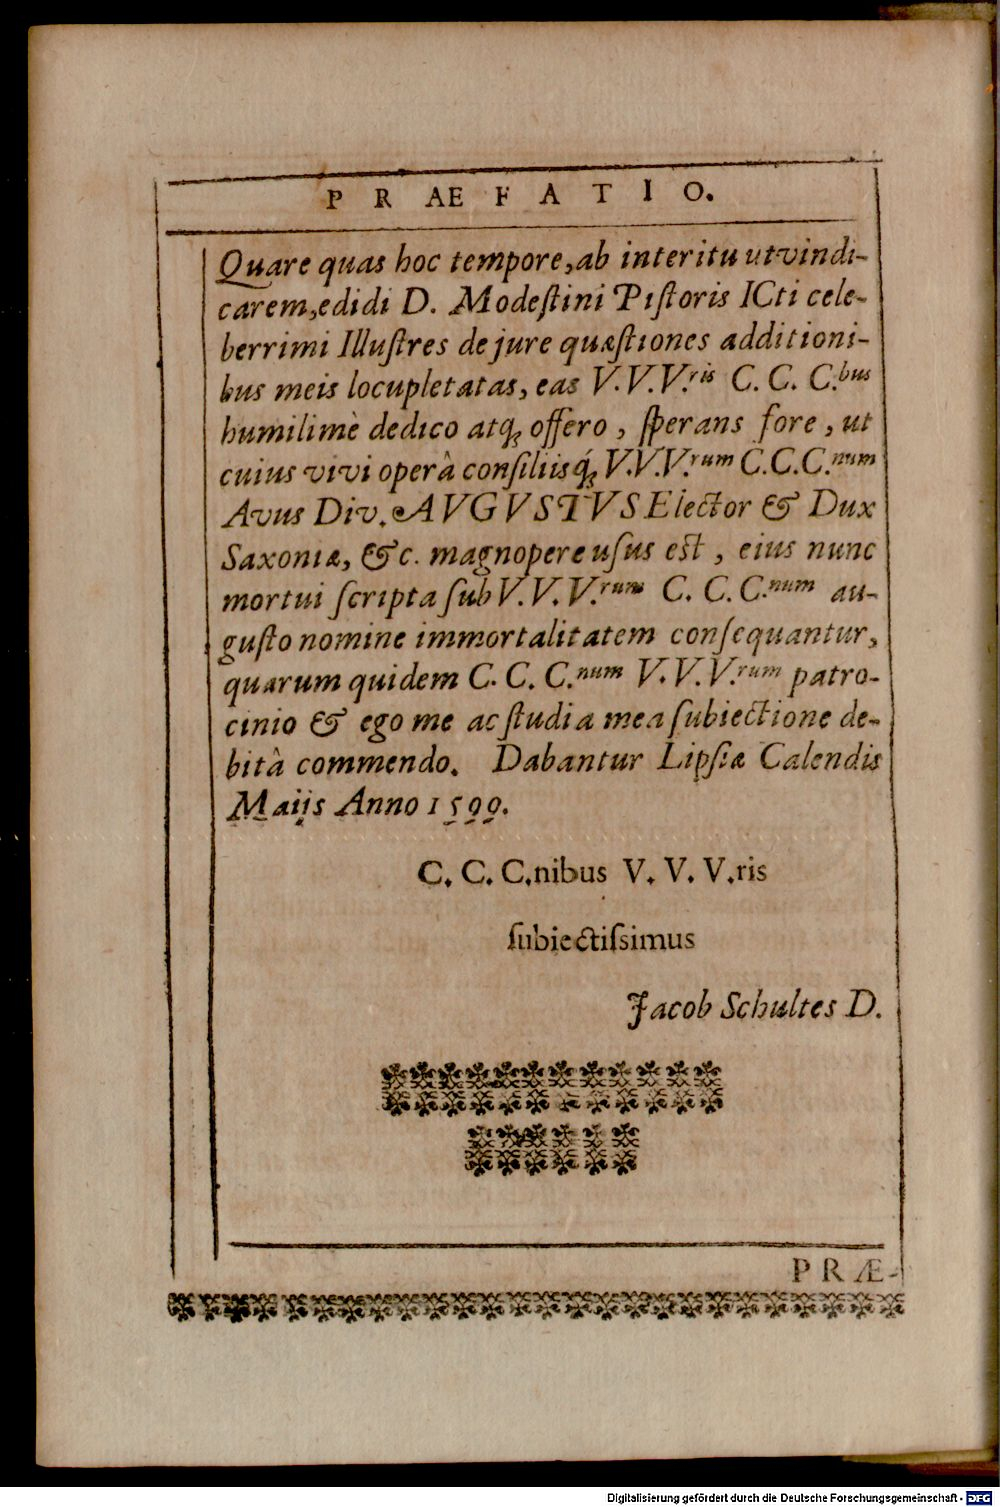 PRÆFATIO.
Quare quas hoc tempore, ab interitu ut vindi-
carem, edidi D. Modeſtini Piſtoris ICti cele-
berrimi Illuſtres de jure quæſtiones additioni-
bus meis locupletatas, eas V. V. V.ris C. C. C.bus
humilimè dedico atq; offero, ſperans fore, ut
cuius vivi operâ conſiliisq́; V.V.V.rum C.C.C.num
Avus Div. AVGVSTVS Elector & Dux
Saxoniæ, &c. magnopere uſus est, eius nunc
mortui ſcripta ſub V. V. V.rum C. C. C.num au-
guſto nomine immortalitatem conſequantur,
quarum quidem C. C. C.num V. V. V.rum patro-
cinio & ego me ac ſtudia mea ſubiectione de-
bitâ commendo. Dabantur Lipſiæ Calendis
Maiis Anno 1599.
C. C. C.nibus V. V. V.ris
ſubiectiſsimus
Jacob Schultes D.
PRÆ-
Digitalisierung gefördert durch die Deutsche Forschungsgemeinschaft - DFG